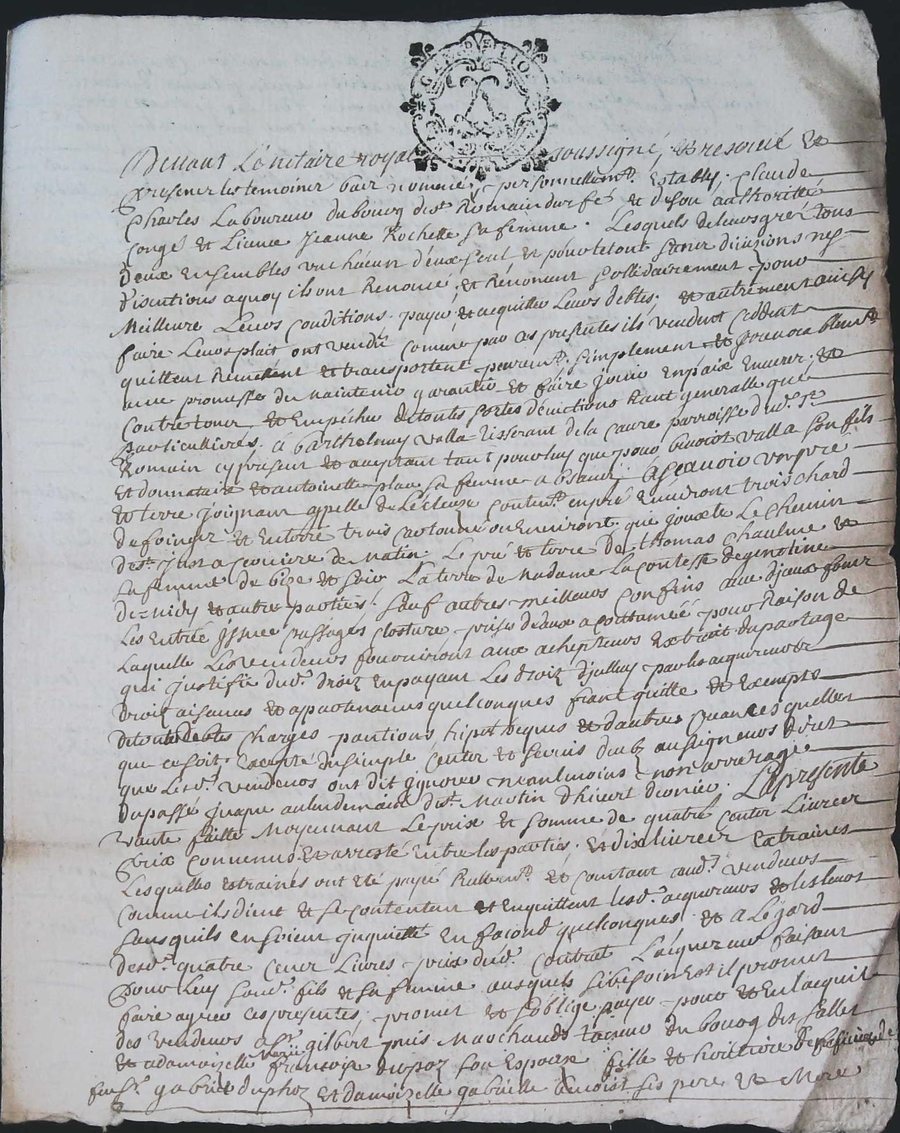 GNA DVSTION
Devant Le notaire royal soussigné, et resouté et
presener les temoiner bas nommés, personnellemt. Establys Claude
Charles Laboureur du bourg de st. Romain durfé, et de son authorité
Congé et Licence Jeanne Rochette sa femme. Lesquels de leurs gré tous
deux ensembles un chacun d'eux seul et pour le tout sans divisions ny
discutions a quoy ils ont Renoncé, et Renoncent Sollidairement pour
Meilleure Leurs Conditions payer, et acquiller Leurs debtes, et autrement ainsy
faire Leurs plait ont vendu comme par ces presentes ils vendent ceddent
quittent Remettent et transportent puremt. simplement et Jrrevocablemt.
avec promesse de maintenir garantir et faire Jouir en paix Envers et
Contre tous, et Empecher de toutes sortes d'évictions tant generalle que
particullieres. à Barthelemy valla tisserant de la Caure parroisse dud. St.
Romain cy present et aceptant tant pour luy que pour benoist valla son fils
et donnataire et antoinette plasse sa femme absents, ascavoir un pré
et terre Joignant apellé de L'écluse content. en pré Environt trois chard
de foin et en terre trois cartonné ou Environt, que Jouxte Le Chemin
de st. Just a cerviere de matin Le pré et terre de thomas chaulme et
sa femme de bize et soir, La terre de Madame La contesse de genetine
de midy et autre parties, sauf autres meilleurs confins avec Djaux fonds
Les Entrée Jssuee passages closture prise deaux acoutumée pour Raison de
Laquelle Les vendeurs fourniront aux achepteurs Extrait du partage
qui Justifie dud. droit en payant Les droit djalluy par les acquereurs et
droit aisances et appartenances quelconques franc quitte et Exempts
de toutes debtes charges pantions hipotheques et d'autres charges quelles
que ce soit Excepté du simple center et servis deub au seigneurs direct
que Lesd. vendeurs ont dit ignorer neanlmoins non arrerage
du passé jusque au lendemain de st. Martin d'hivert dernier. La presente
vante faitte Moyennant Le prix et somme de quatre center Livreer
prix convenue et arresté Entre les parties, et dix livreer Estraines
Lesquelles estraines ont été payé Reellemt. et contant aud. vendeurs
comme ils dient et se contentent et En quittent lesd. acquereurs et les leurs
sans quils en soient jnquietté en facond quelconques, et a Légard
desd. quatre cener Livres prix dud. contrat Laquereur faisant
pour Luy sond. fils et sa femme ausquels sil besoin Est il promet
faire agreer ces presentes, promet et soblige payer pour et en Lacquit
des vendeurs a sr. gilbert puis Marchands taneur du bourg des salles
et adamoizelle marie francoise dupoz son Espouze fille et heritiere de
feu sr. gabriel duphoz et damoizelle gabrielle benoist ses pere et Mere